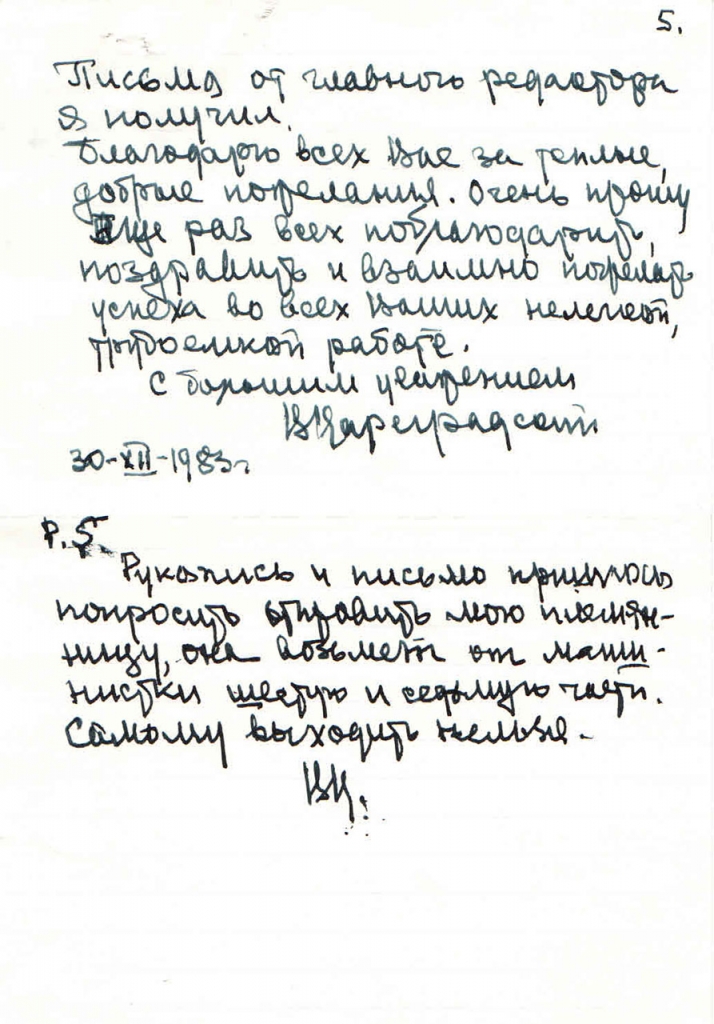 5.
Письмо от главного редактора
я получил.
Благодарю всех Вас за теплые,
добрые пожелания. Очень прошу
Еще раз всех поблагодарить,
поздравить и взаимно пожелать
успеха во всех Ваших нелегкой,
трудоемкой работе.
С большим уважением
ВЦареградский
30-XII-1983г.
P.S.
Рукопись и письмо пришлось
попросить отправить мою племян-
ницу, она возьмет от маши-
нистки шестую и седьмую части.
Самому выходить нельзя.
ВЦ.